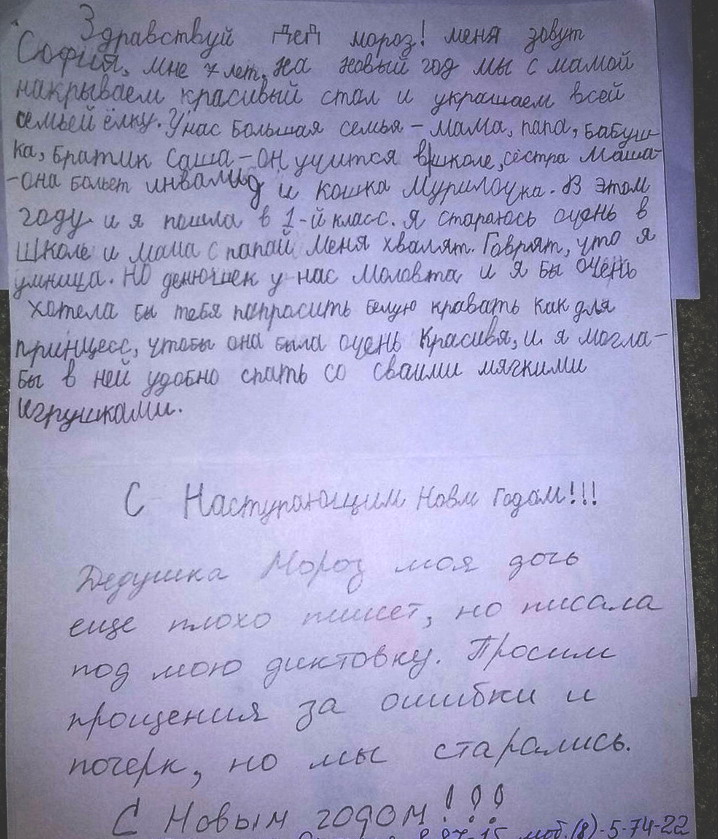 Здравствуй дед мороз! меня зовут
София, мне 7 лет, на новый год мы с мамой
накрываем красивый стал и украшаем всей
семьей ёлку. У нас большая семья - мама, папа, бабуш-
ка, братик Саша - он учится в школе, сестра Маша-
-она бальет инвалид и кошка Мурилочка. В этом
году и я пошла в 1-й класс. Я стараюсь очень в
школе и мама с папай меня хвалят. Говрят, что я
умница. Но денюшек у нас маловта и я бы очень
хотела бы тебя папрасить белую кравать как для
принцесс, чтобы она была очень Красивя, и я могла-
бы в ней удобно спать со сваими мягкими
игрушками.
С Наступающим Новм Годом!!!
Дедушка Мороз моя дочь
еще плохо пишет, но писала
под мою диктовку. Просим
прощения за ошибки и
почерк, но мы старались.
С Новым годом!!!
моб.(8)-5-74-22